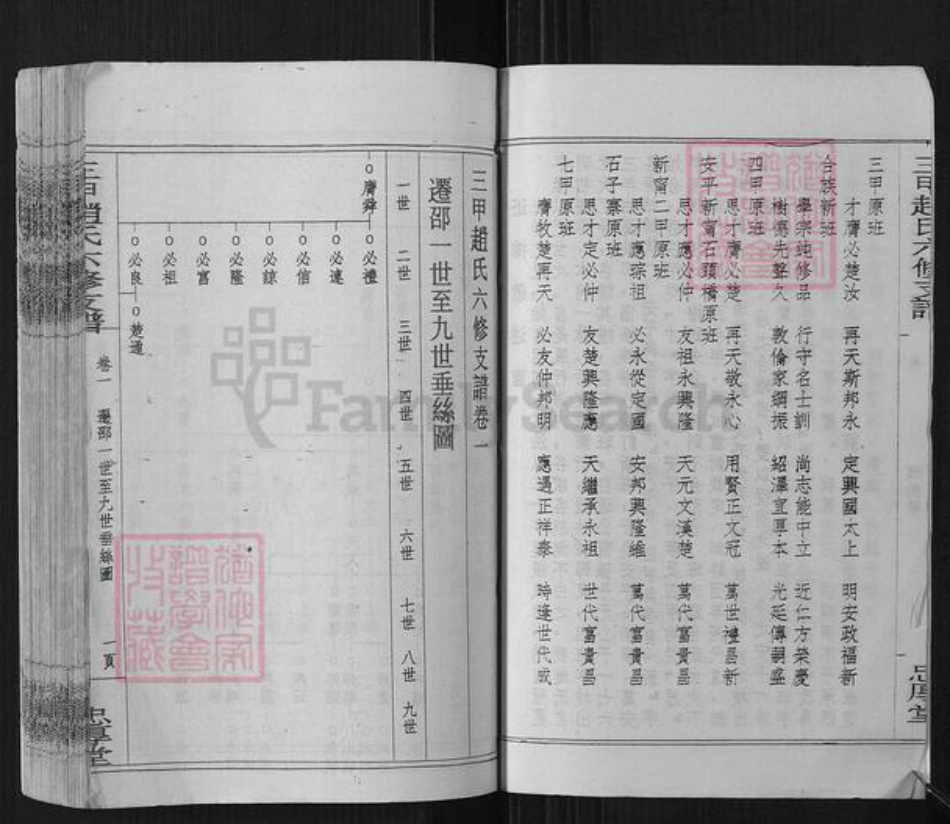 三甲趙氏六修支譜
忠厚堂
三甲原班
才膺必楚汝 再天斯邦永 定興國太上 明安政福新
合族新班
舉宗純修品 行守名士訓 尚志能中立 近仁方榮慶
樹傷先整久 敦倫家綱振 紹澤宜專本 光延傳嗣盛
四甲原班
思才膺必楚 再天敬永心 用賢正文冠 萬世禮昌新
安平新甯石頭橋原班
思才應必仲 友祖永興隆 天元文漢楚 萬代富貴昌
新甯二甲原班
思才應琮祖 必永從定國 安邦興隆維 萬代富貴昌
石子寨原班
思才定必仲 友楚興隆應 天繼承永祖 世代富貴昌
七甲原班
膺牧楚再天 必友仲邦明 應遇正祥泰 時逢世代成
三甲趙氏六修支譜卷一
遷邵一世至九世垂絲圖
一世 二世 三世 四世 五世 六世 七世 八世 九世
膺舜 必禮
必達
必信
必諒
必隆
必富
必祖
必良 楚通
三甲趙氏六修支譜 卷一 遷邵一世至九世垂絲圖 一頁 忠厚堂
FamilySearch